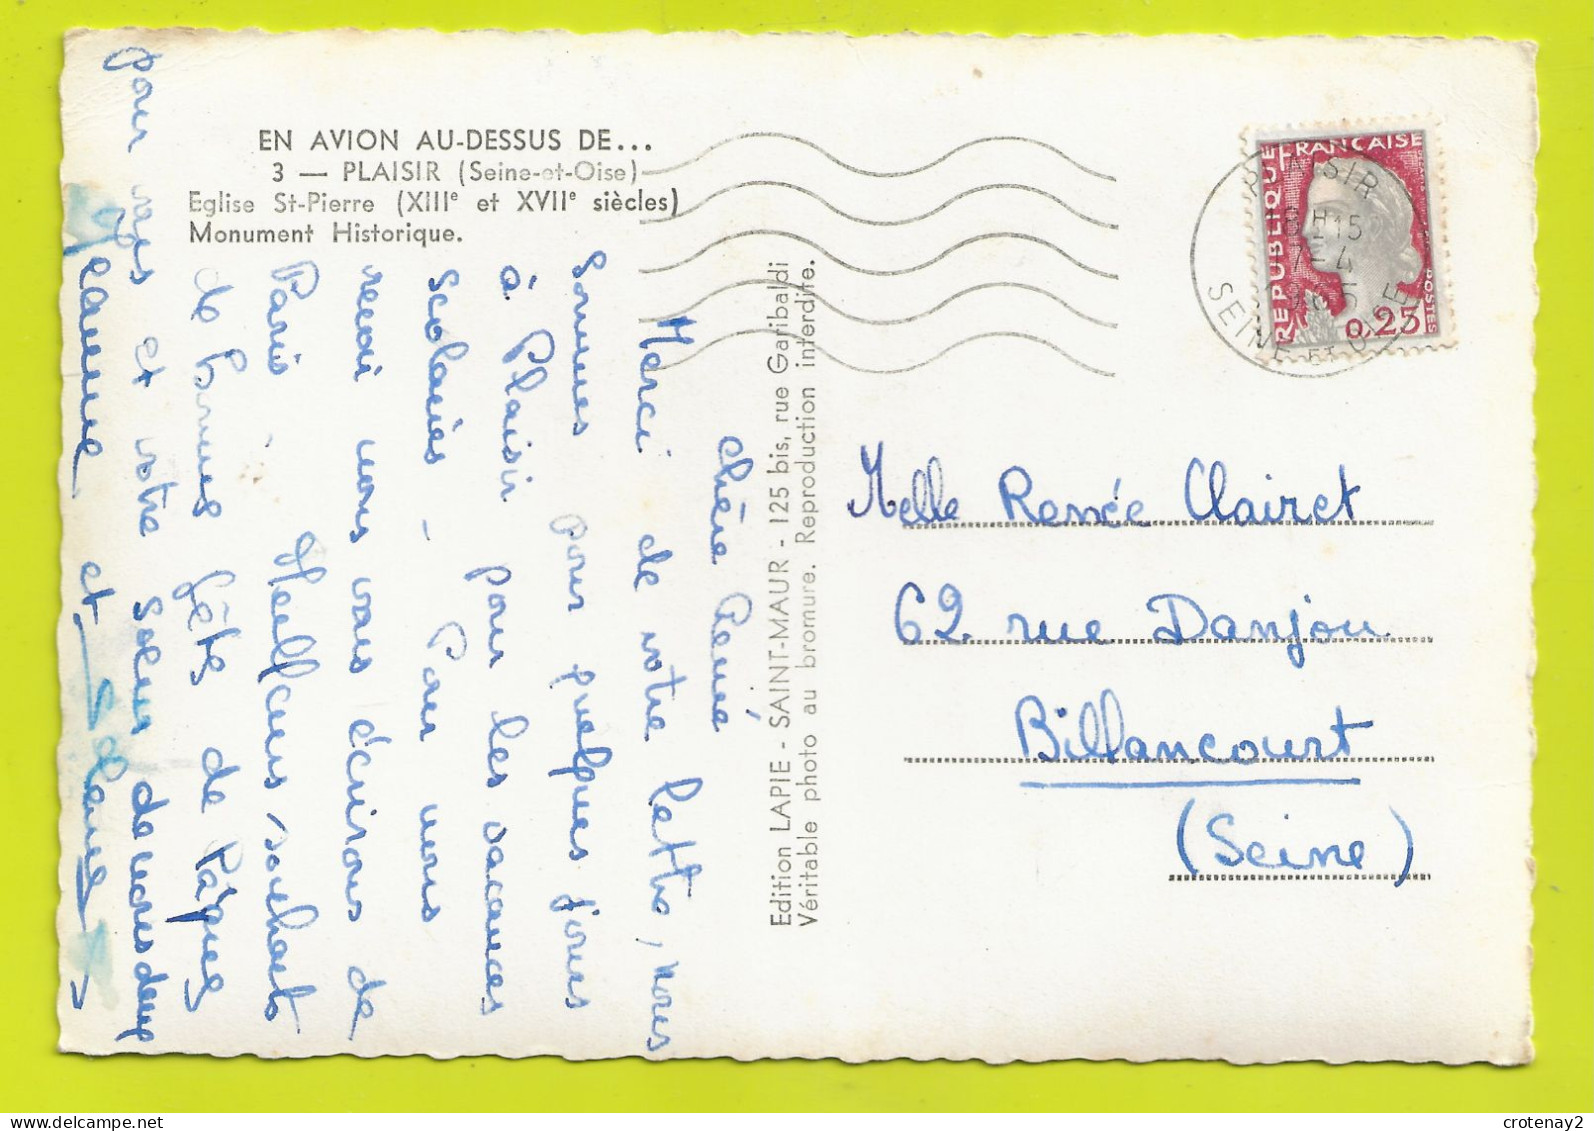 EN AVION AU-DESSUS DE...
3 — PLAISIR (Seine-et-Oise)
Eglise St-Pierre (XIIIe et XVIIe siècles)
Monument Historique.
chère Renée
Merci de votre lettre, nous
sommes pour quelques jours
à Plaisir pour les vacances
scolaires - Pour vers
nous vous écrirons de
Paris. Meilleurs souhaits
de bonnes fêtes de Pâques
pour vous et votre soeur de
Jeanne et
Edition LAPIE - SAINT-MAUR - 125 bis, rue Garibaldi
Véritable photo au bromure. Reproduction interdite.
REPUBLIQUE FRANCAISE
POSTES
0,25
PLAISIR
SEINE ET OISE
Melle Renée Clairet
62 rue Danjou
Billancourt
(Seine)
crotenay2